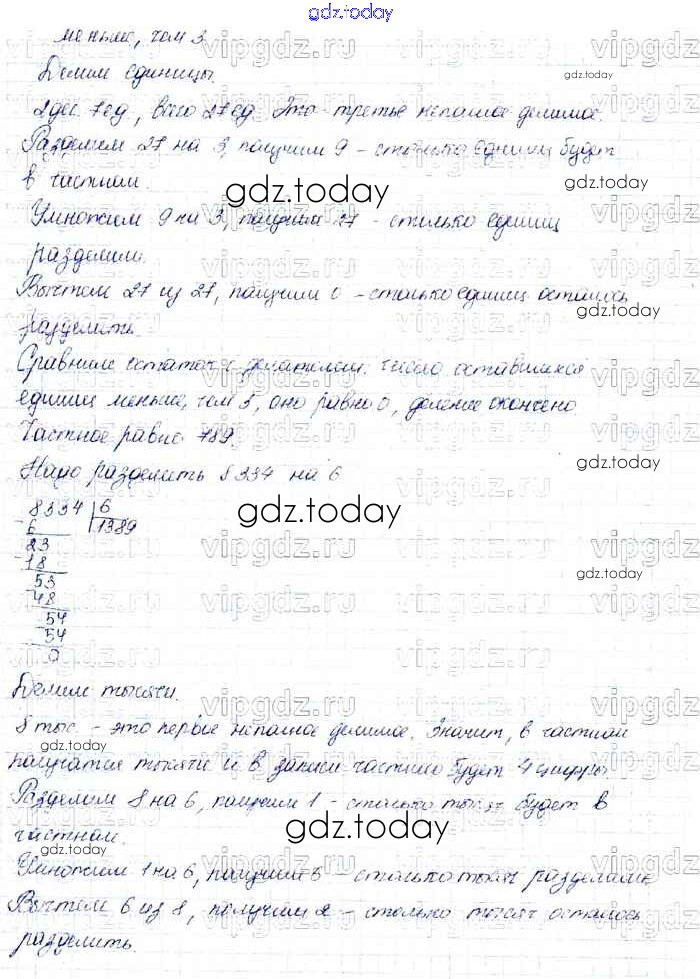 gdz.today
меньше, чем 3
Делим единицы.
2 дес. 7 ед., всего 27 ед. Это – третье неполное делимое.
Разделим 27 на 3, получим 9 – столько единиц будет
в частном.
Умножим 9 на 3, получим 27 – столько единиц
разделили.
Вычтем 27 из 27, получим 0 – столько единиц осталось
разделить.
Сравним остаток с делителем: число оставшихся
единиц меньше, чем 3, оно равно 0, деление окончено
Частное равно 789.
Надо разделить 8334 на 6
8334 6
6 1389
23
18
53
48
54
54
0
Делим тысячи.
8 тыс. – это первое неполное делимое. Значит, в частном
получатся тысячи и в записи частного будет 4 цифры
Разделим 8 на 6, получим 1 – столько тысяч будет в
частном.
Умножим 1 на 6, получим 6 – столько тысяч разделили.
Вычтем 6 из 8, получим 2 – столько тысяч осталось
разделить.